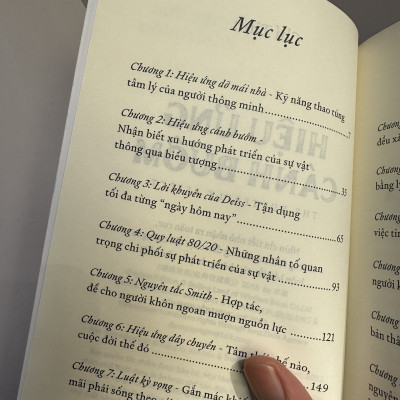 Mục lục
Chương 1: Hiệu ứng dỡ mái nhà - Kỹ năng thao túng
tâm lý của người thông minh 7
Chương 2: Hiệu ứng cánh bướm -
Nhận biết xu hướng phát triển của sự vật
thông qua biểu tượng 35
Chương 3: Lời khuyên của Deiss - Tận dụng
tối đa từng "ngày hôm nay" 65
Chương 4: Quy luật 80/20 - Những nhân tố quan
trọng chi phối sự phát triển của sự vật 93
Chương 5: Nguyên tắc Smith - Hợp tác,
để cho người khôn ngoan mượn nguồn lực 121
Chương 6: Hiệu ứng dây chuyền - Tâm thế nào,
cuộc đời thế đó 149
Chương 7: Luật kỳ vọng - Gắn mác
mãi phải sống theo
Chươ
đều xả
Chươ
bằng lý
Chươ
việc tìn
Chươn
bản thâ
Chươn